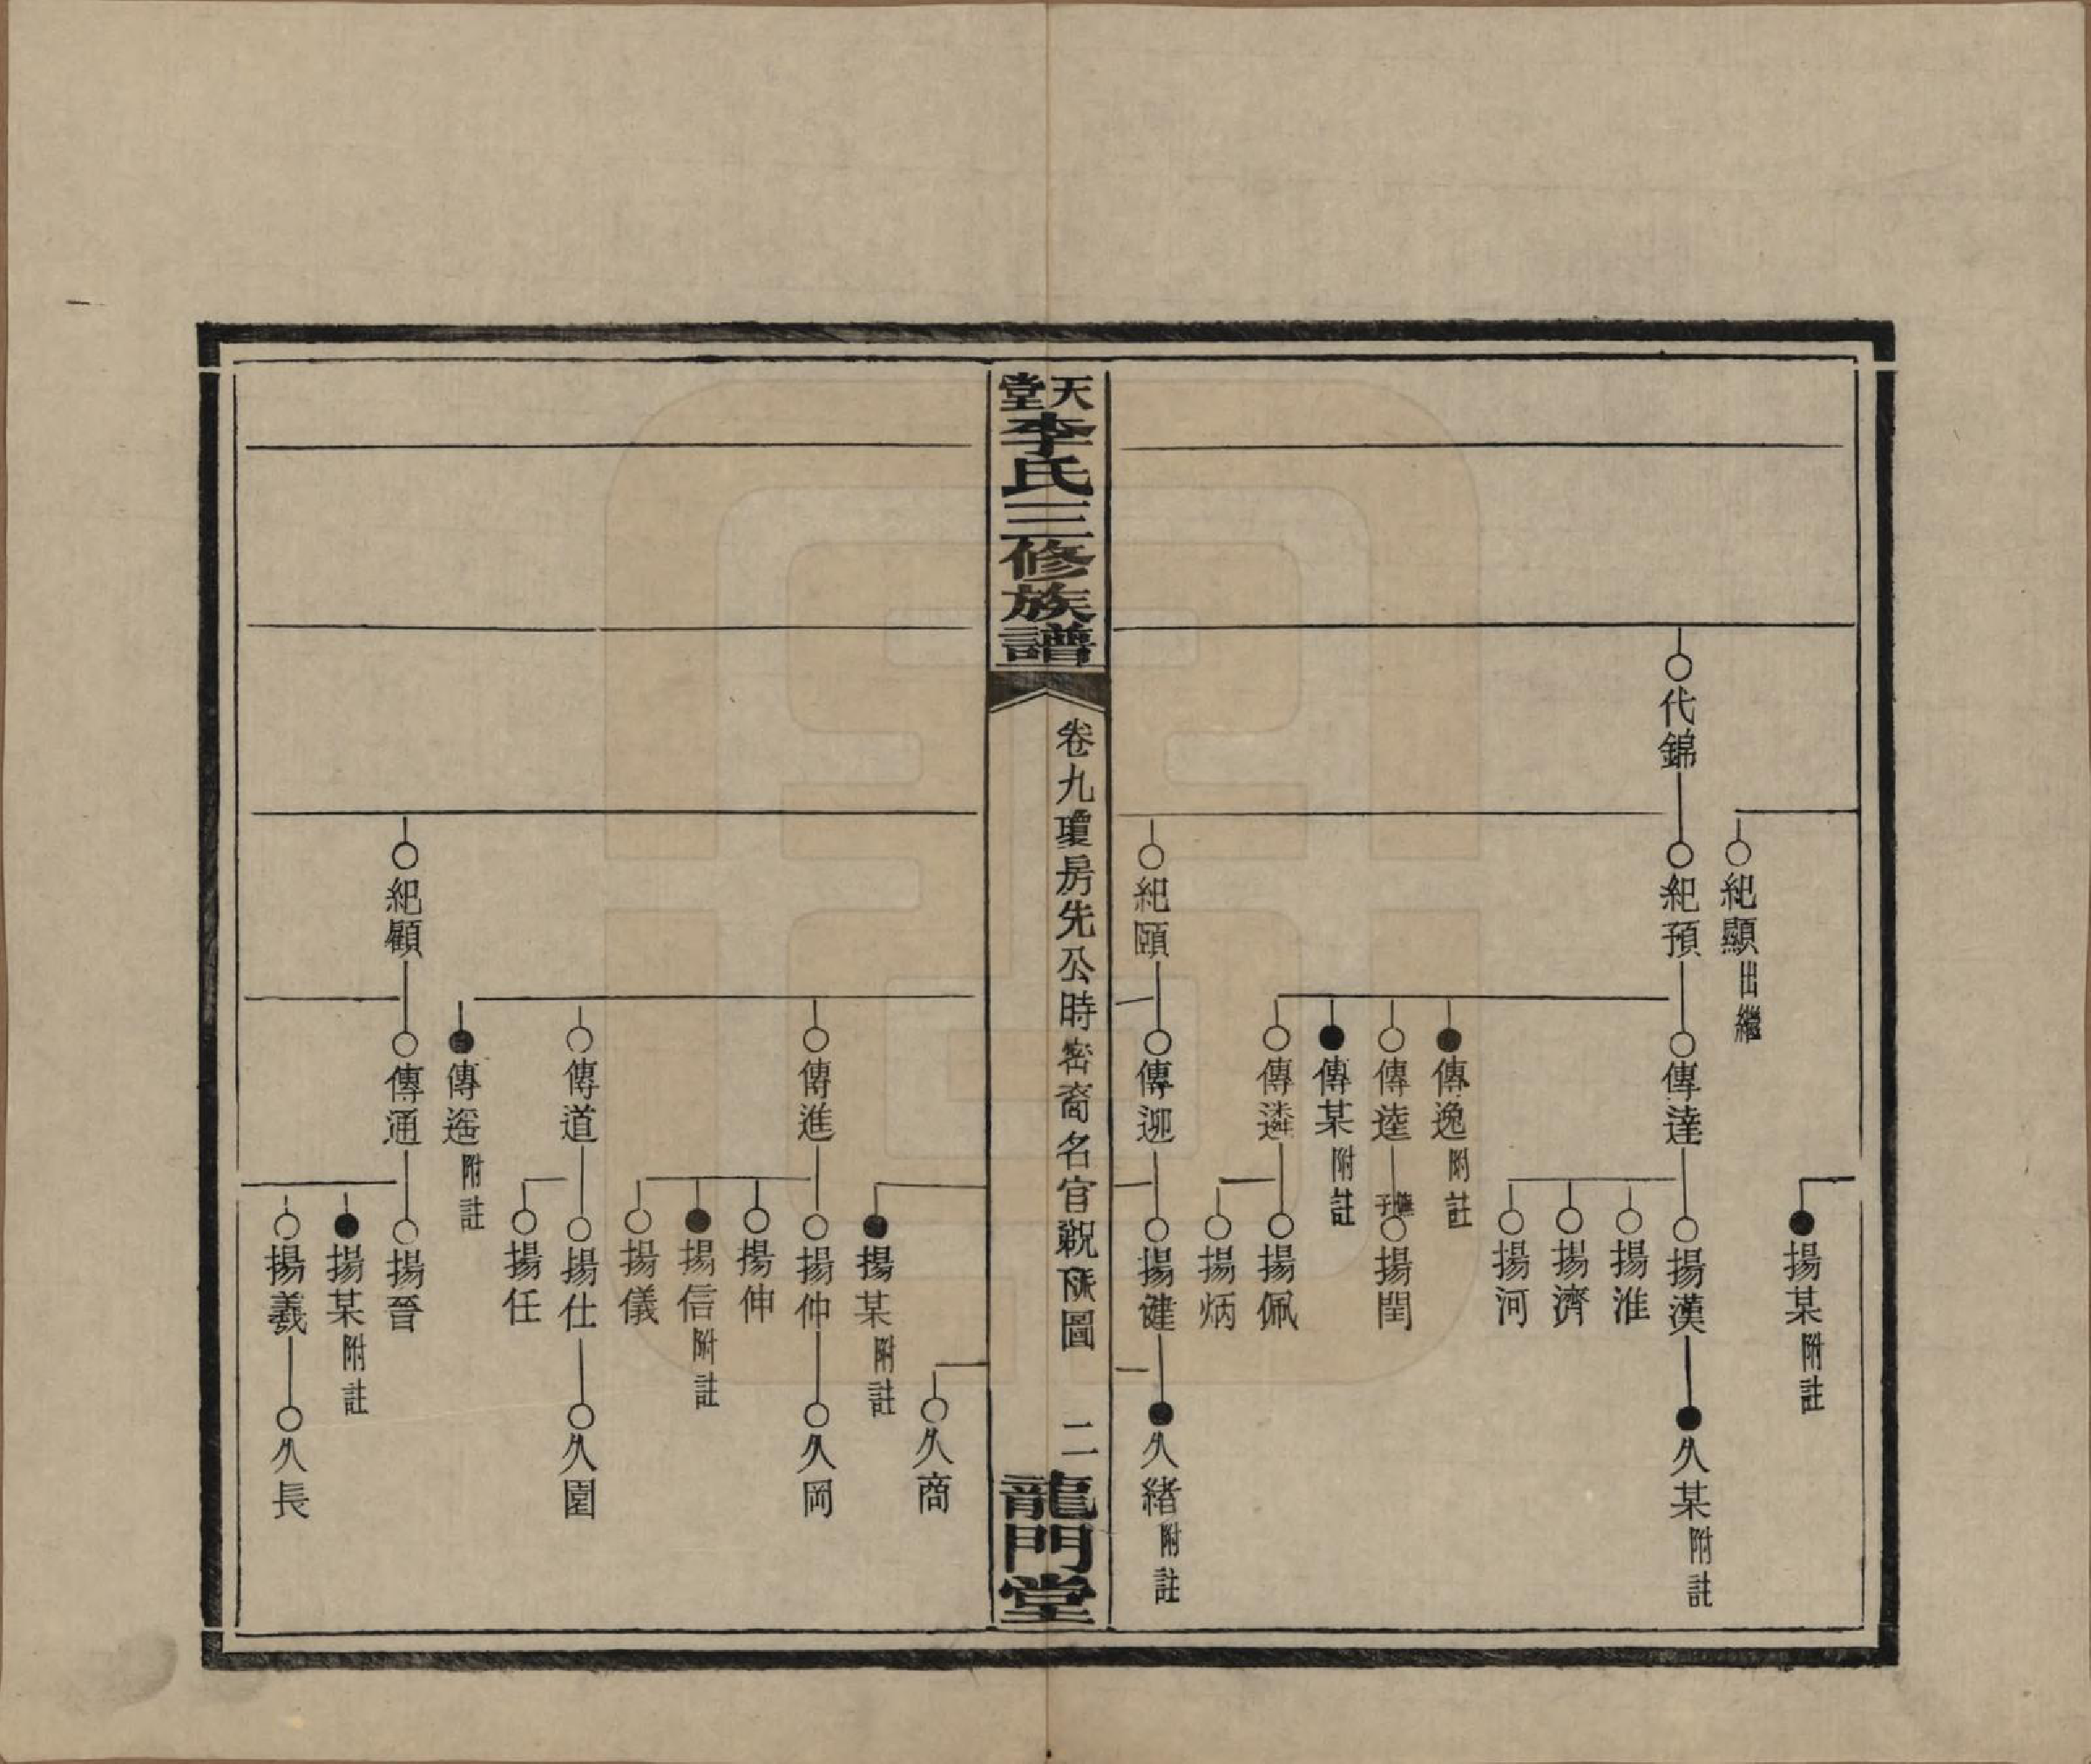 揚某附註
紀顯出繼
代錦
紀預
傳達
揚漢
久某附註
揚淮
揚濟
揚河
傳逸附註
傳逵
繼子
揚閏
傳某附註
傳遴
揚佩
揚炳
紀頤
傳迎
揚健
久緒附註
天堂李氏三修族譜
卷九瓊房先公時密裔名官覲房圖
二
龍門堂
久商
揚某附註
傳進
揚仲
久岡
揚伸
揚信附註
揚儀
傳道
揚仕
久園
揚任
傳遙附註
紀顧
傳通
揚晉
揚某附註
揚羲
久長